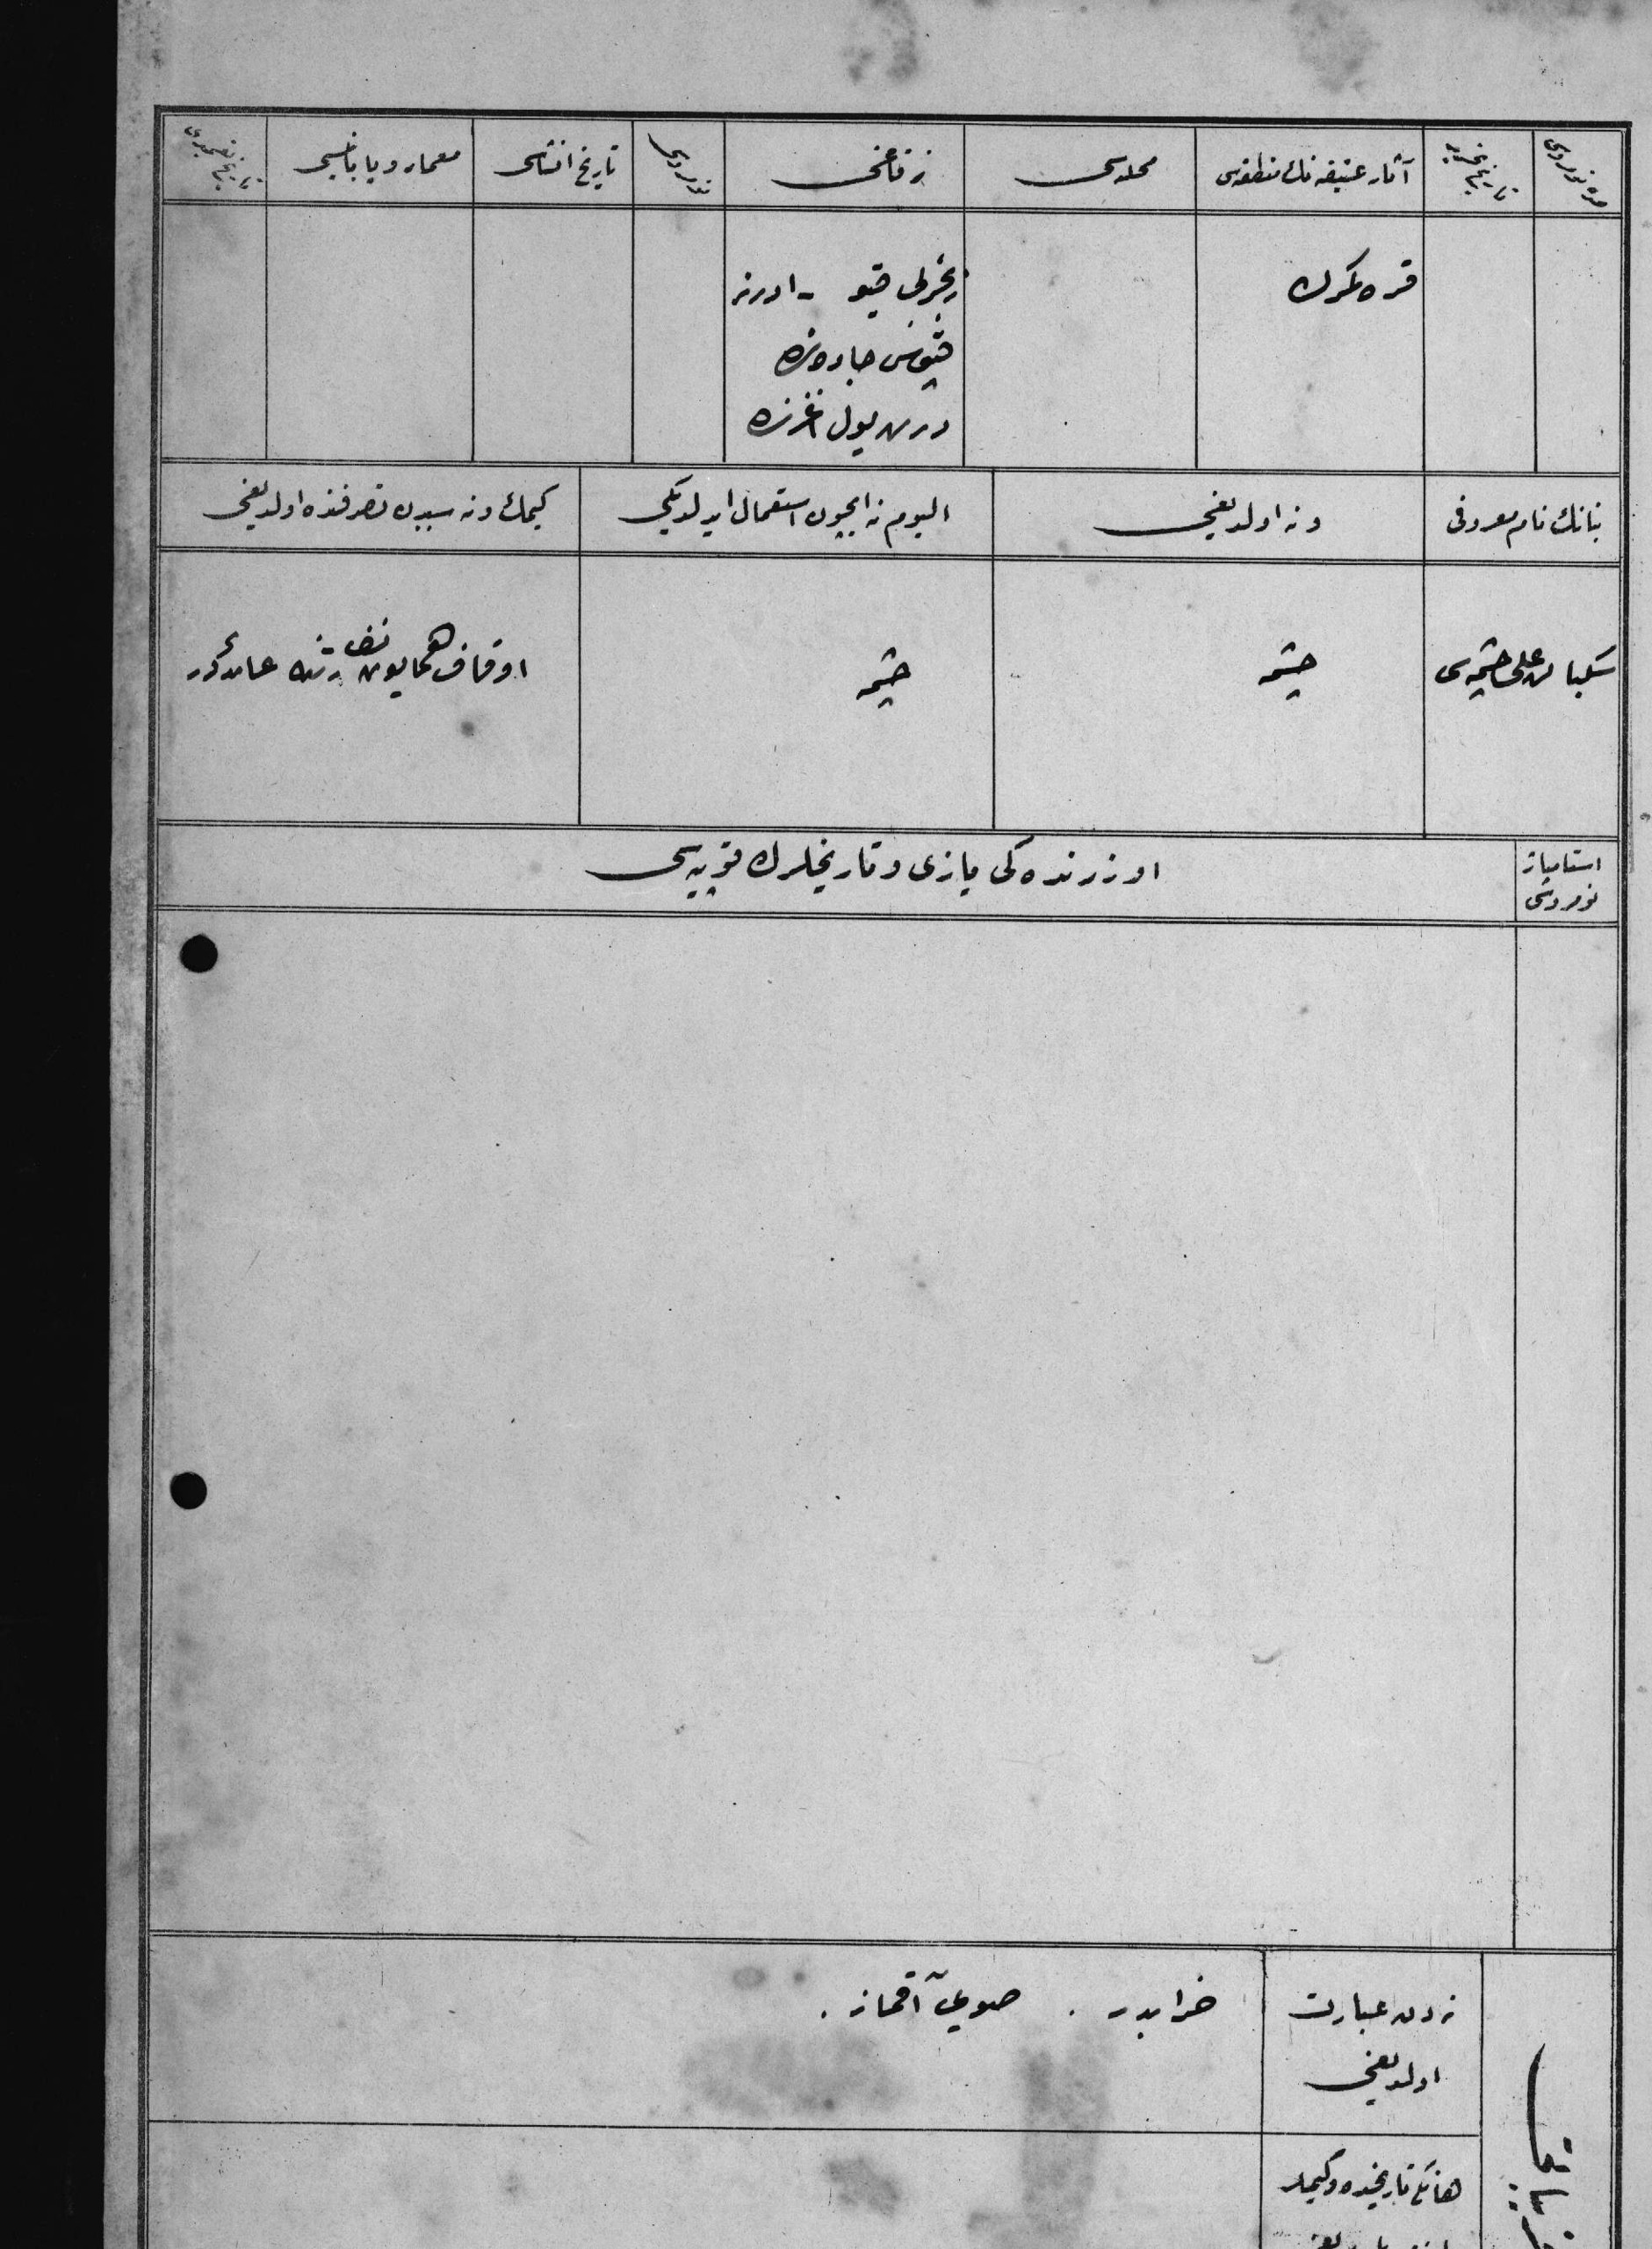 صره نومروسی
تاریخ تحریر
آثار عتیقه نك منطقه سی
محله سی
زقاغی
نومروسی
تاریخ انشاسی
معمار ویا بانیسی
تاریخ تعمیری
قره كمرك
زنجیرلی قپو - ادرنه
قپوسی جاده سنده
درت یول آغزنده
بنانك نام معروفی
و نه اولدیغی
الیوم نه ایچون استعمال ایدلدیكی
كیمك و نه سببدن تصرفنده اولدیغی
سكبان علی چشمه سی
چشمه
چشمه
اوقاف همایون نظارتنه عائددر
استامپاژ نومروسی
اوزرنده كی یازی و تاریخلرك قوپیه سی
نه دن عبارت
اولدیغی
خرابدر . صویی آقماز .
هانكی تاریخده و كیملر